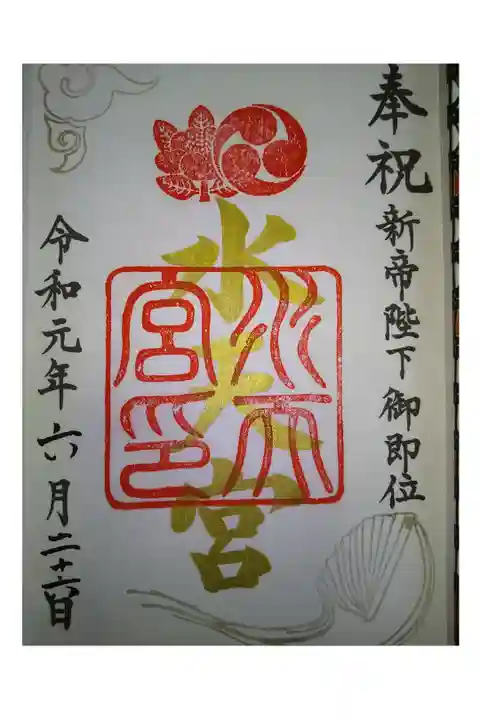 奉祝新帝陛下御即位
水天宮
水天宮印
令和元年六月二十六日